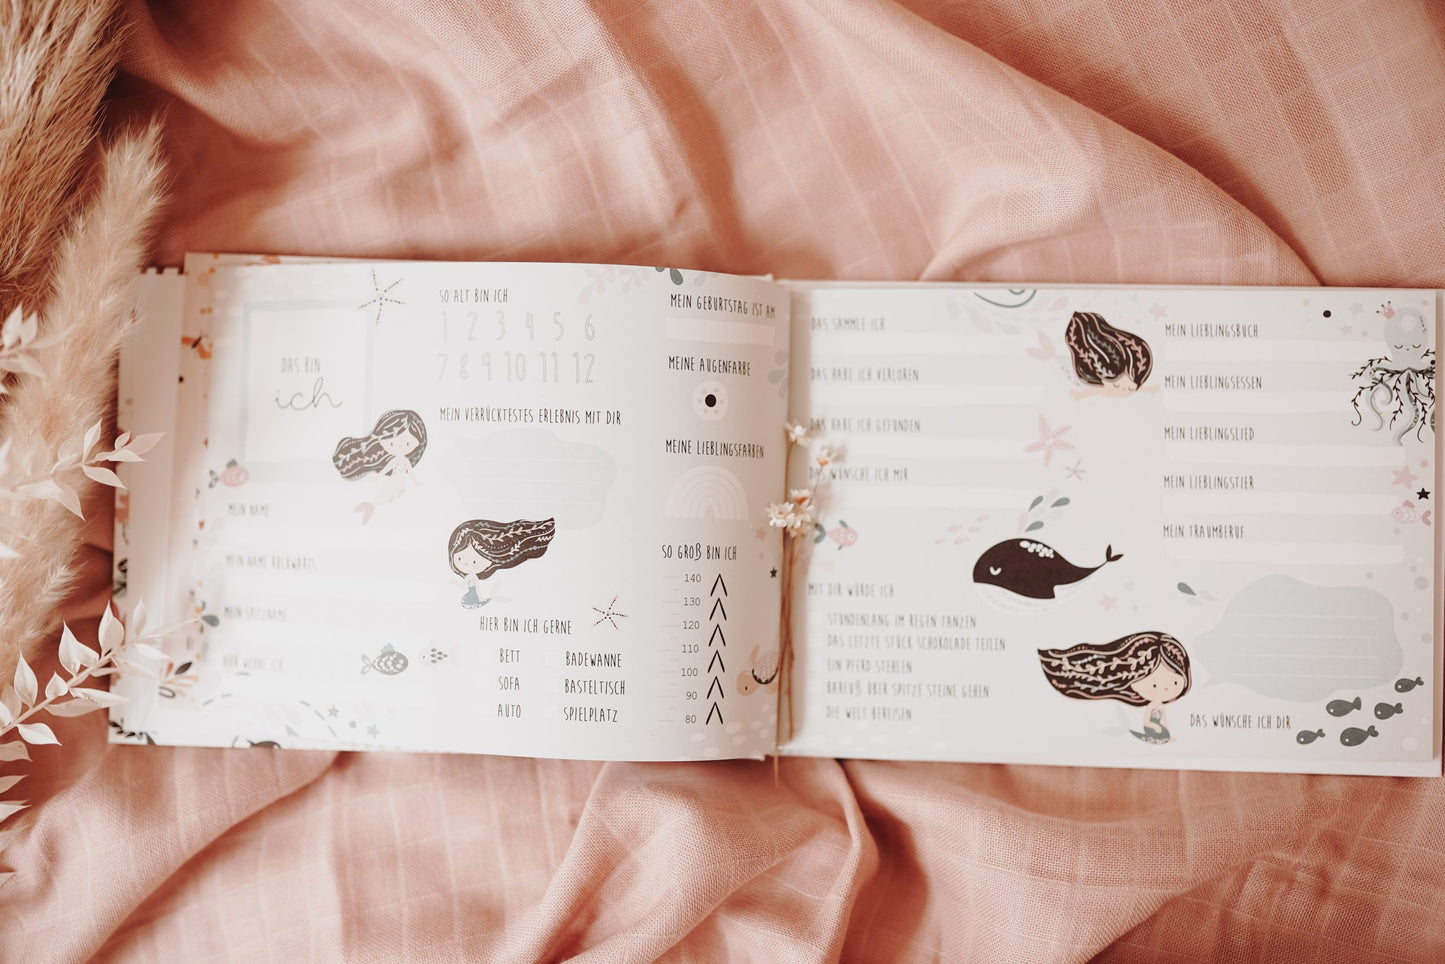 DAS BIN
ich
MEIN NAME
MEIN NAME RÜCKWÄRTS
MEIN SPITZNAME
HIER WOHNE ICH
SO ALT BIN ICH
1 2 3 4 5 6
7 8 9 10 11 12
MEIN VERRÜCKTESTES ERLEBNIS MIT DIR
HIER BIN ICH GERNE
BETT BADEWANNE
SOFA BASTELTISCH
AUTO SPIELPLATZ
MEIN GEBURTSTAG IST AM
MEINE AUGENFARBE
MEINE LIEBLINGSFARBEN
SO GROß BIN ICH
140
130
120
110
100
90
80
DAS SAMMLE ICH
DAS HABE ICH VERLOREN
DAS HABE ICH GEFUNDEN
DAS WÜNSCHE ICH MIR
MIT DIR WÜRDE ICH
STUNDENLANG IM REGEN TANZEN
DAS LETZTE STÜCK SCHOKOLADE TEILEN
EIN PFERD STEHLEN
BARFUß ÜBER SPITZE STEINE GEHEN
DIE WELT BEREISEN
MEIN LIEBLINGSBUCH
MEIN LIEBLINGSESSEN
MEIN LIEBLINGSLIED
MEIN LIEBLINGSTIER
MEIN TRAUMBERUF
DAS WÜNSCHE ICH DIR